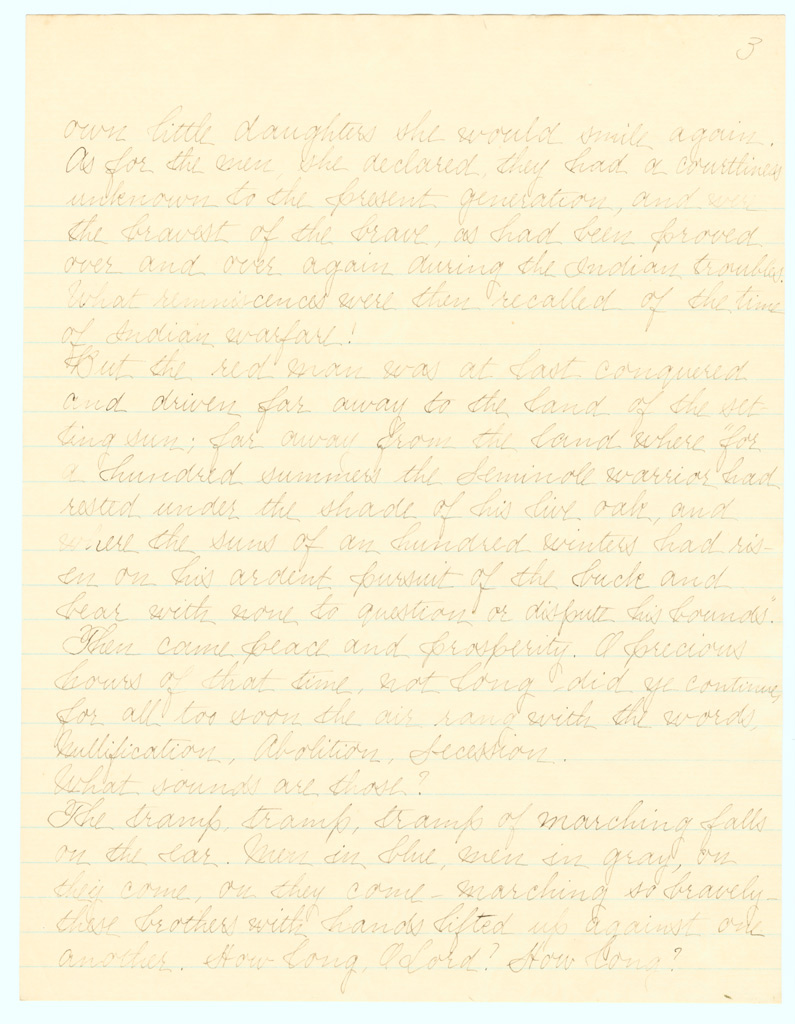 3
own little daughters she would smile again.
As for the men, she declared, they had a courtliness
unknown to the present generation, and were
the bravest of the brave, as had been proved
over and over again during the Indian troubles.
What reminiscences were then recalled of the time
of Indian warfare!
But the red man was at last conquered
and driven far away to the land of the set-
ting sun; far away from the land where "for
a hundred summers the Seminole warrior had
rested under the shade of his live oak, and
where the suns of an hundred winters had ris-
en on his ardent pursuit of the buck and
bear with none to question or dispute his bounds".
Then came peace and prosperity. O precious
hours of that time, not long did ye continue,
for all too soon the air rang with the words,
Nullification, Abolition, Secession.
What sounds are those?
The tramp, tramp, tramp of marching falls
on the ear. Men in blue, men in gray, on
they come, on they come - marching so bravely -
these brothers with hands lifted up against one
another. How long, O Lord? How long?